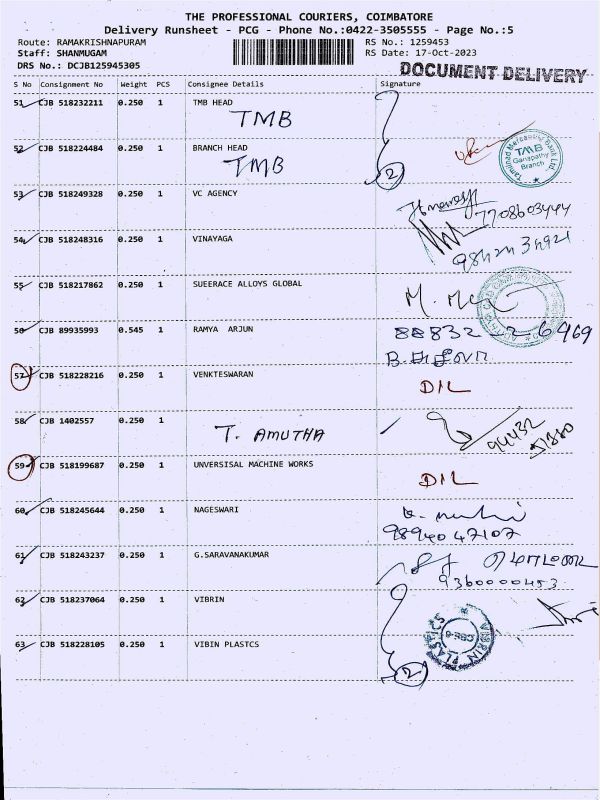 THE PROFESSIONAL COURIERS, COIMBATORE
Delivery Runsheet - PCG - Phone No.:0422-3505555 - Page No.:5
Route: RAMAKRISHNAPURAM RS No.: 1259453
Staff: SHANMUGAM RS Date: 17-Oct-2023
DRS No.: DCJB125945305 DOCUMENT DELIVERY
S No Consignment No Weight PCS Consignee Details Signature
51 CJB 518232211 0.250 1 TMB HEAD
TMB
52 CJB 518224484 0.250 1 BRANCH HEAD
TMB 2
Tamilnad Mercantile Bank Ltd.
TMB
Ganapathy
Branch
53 CJB 518249328 0.250 1 VC AGENCY
7708603444
54 CJB 518248316 0.250 1 VINAYAGA
55 CJB 518217862 0.250 1 SUEERACE ALLOYS GLOBAL
56 CJB 89935993 0.545 1 RAMYA ARJUN 88832-26469
57 CJB 518228216 0.250 1 VENKTESWARAN
DIL
58 CJB 1402557 0.250 1
T. AMUTHA 94432
59 CJB 518199687 0.250 1 UNVERSISAL MACHINE WORKS
DIL
60 CJB 518245644 0.250 1 NAGESWARI
9894047107
61 CJB 518243237 0.250 1 G.SARAVANAKUMAR
9360000453
62 CJB 518237064 0.250 1 VIBRIN
VIBRIN PLASTICS
CBE-6
63 CJB 518228105 0.250 1 VIBIN PLASTCS
2